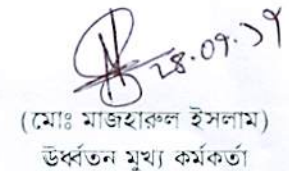 ২৪.০৭.১৭
(মোঃ মাজহারুল ইসলাম)
ঊর্ধ্বতন মুখ্য কর্মকর্তা